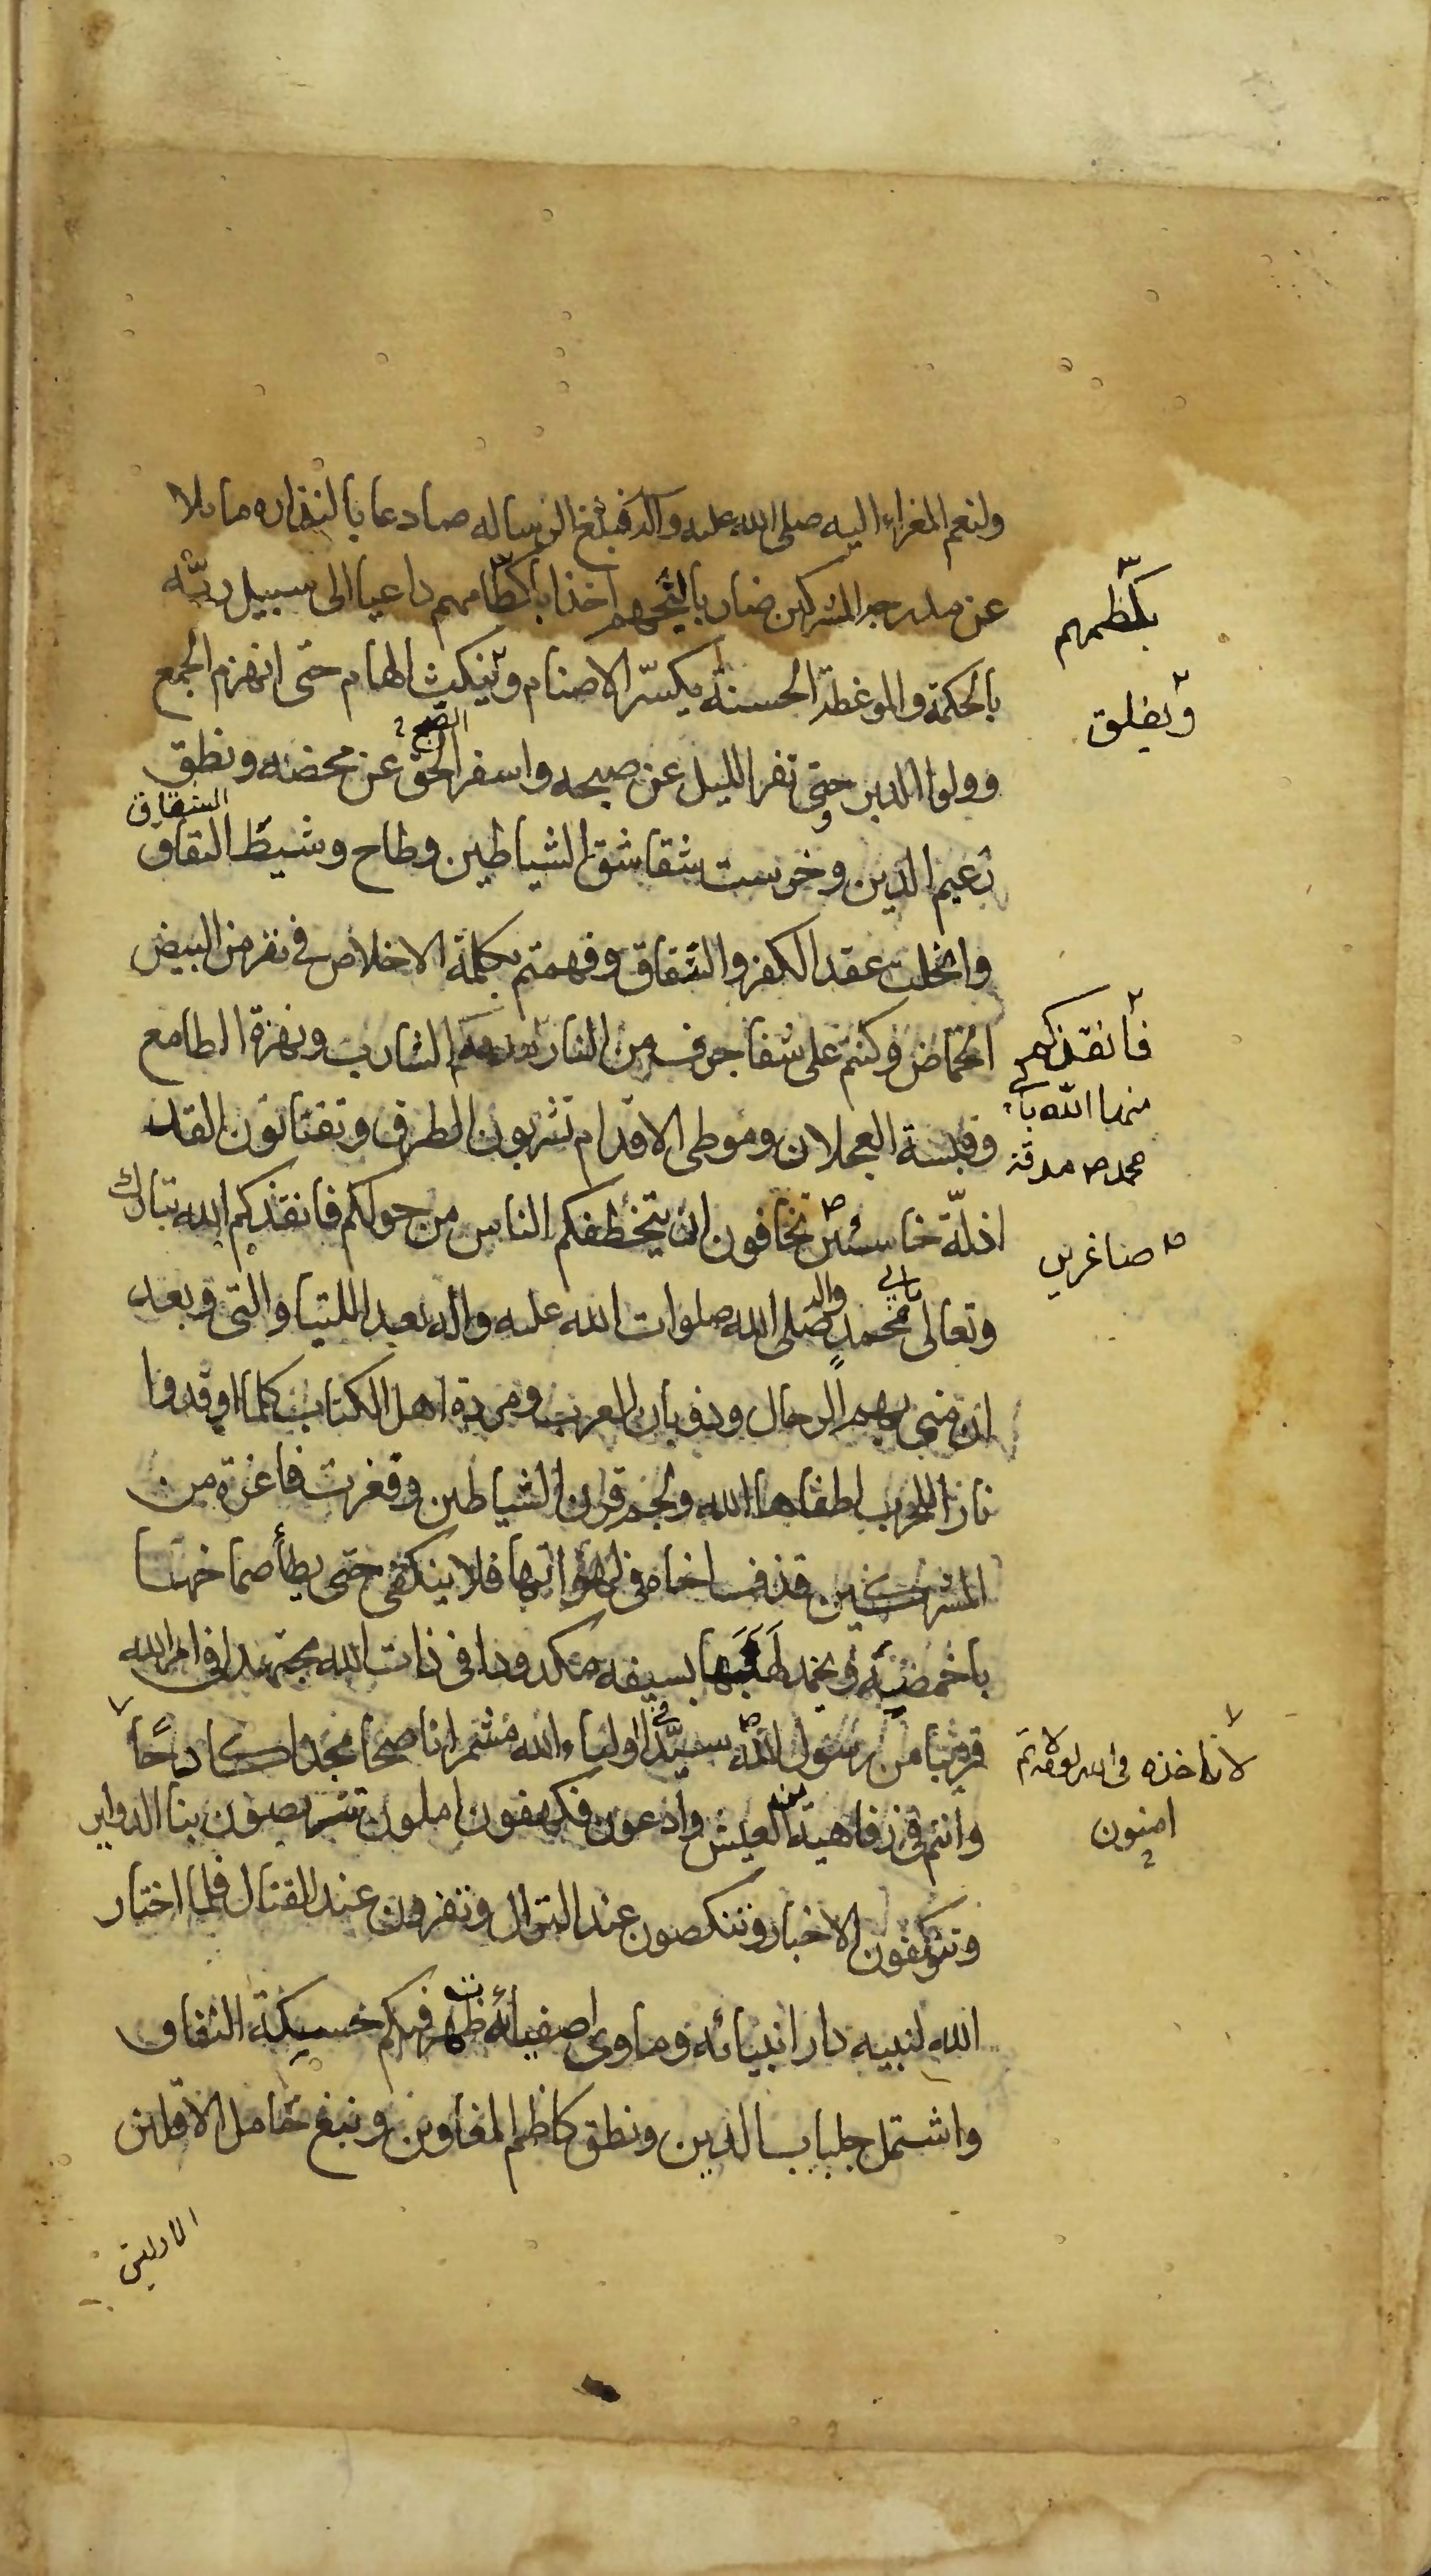 ولنعم المغزاء اليه صلى الله عليه وآله فبلغ الرسالة صادعا بالنذاره مايلا
عن مدرجة المشركين ضاربا لثبجهم اخذا باكظامهم داعيا الى سبيل ربّه
بكظمهم
بالحكمة والموعظة الحسنة يكسّر الاصنام وينكث الهام حتى انهزم الجمع
ويفلق
وولوا الدبر وحتى تفرا الليل عن صبحه واسفر الحق عن محضه ونطق
الصبح
زعيم الدين وخرست شقاشق الشياطين وطاح وشيظ النفاق
الشقاق
وانحلت عقد الكفر والشقاق وفهمتم بكلمة الاخلاص في نفر من البيض
الخماص وكنتم على شفا جرف من النار مذقة الشارب ونهزة الطامع
فأنقذكم
منها الله با
محمد ص مذقة
وقبسة العجلان وموطى الاقدام تشربون الطرق وتقتاتون القد
اذلّة خاسئين تخافون ان يتخطفكم الناس من حولكم فانقذكم الله تبارك
صاغرين
وتعالى بابي محمد صلى الله صلوات الله عليه واله بعد اللتيا والتي وبعد
ان مني ببهم الرجال وذوبان العرب ومردة اهل الكتاب كلما اوقدوا
نارا للحرب اطفاها الله ونجم قرن الشياطين وفغرت فاغرة من
المشركين قذف اخاه في لهواتها فلا ينكفي حتى يطأ صماخها
باخمصه ويخمد لهبها بسيفه مكدودا في ذات الله مجتهدا في امر الله
قريبا من رسول الله سيّدا في اولياء الله مشمرا ناصحا مجدا كادحًا
لا تاخذه في الله لومة لائم
وانتم في رفاهية من العيش وادعون فكهون املون تتربصون بنا الدواير
امنون
وتتوكفون الاخبار وتنكصون عند النزال وتفرون عند القتال فلما اختار
الله لنبيه دار انبيائه وماوى اصفيائه ظهرت فيكم حسيكة النفاق
واشتمل جلباب الدين ونطق كاظم المغاوين ونبغ خامل الاقلين
الاولين